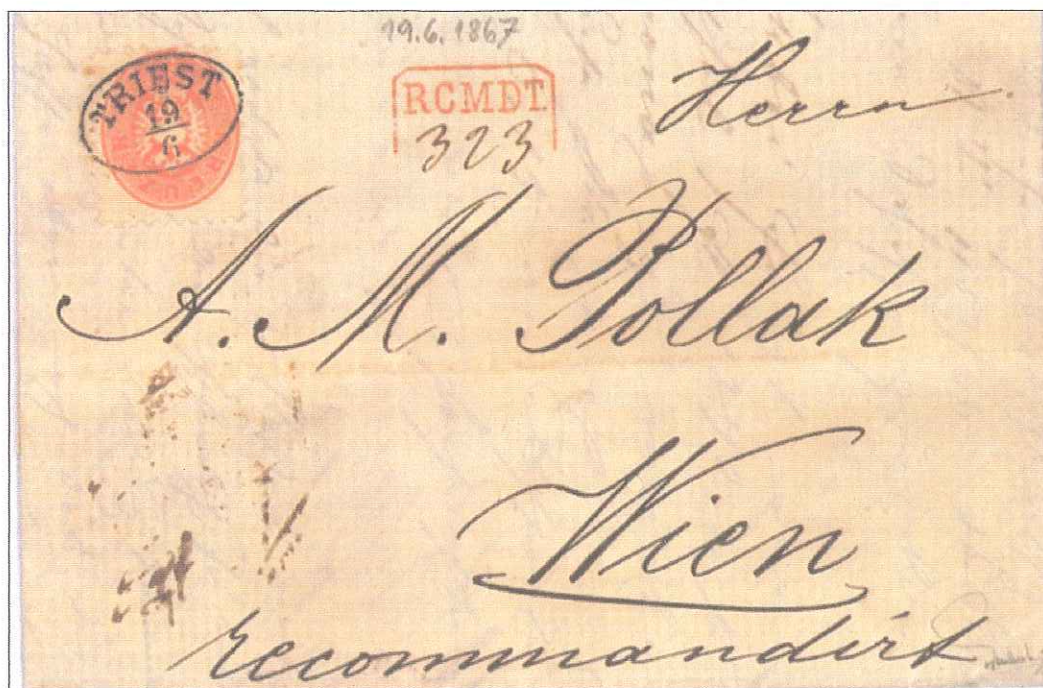 19.6.1867
TRIEST
19
6
RCMDT.
323
Herrn
A. M. Pollak
Wien
recommandirt